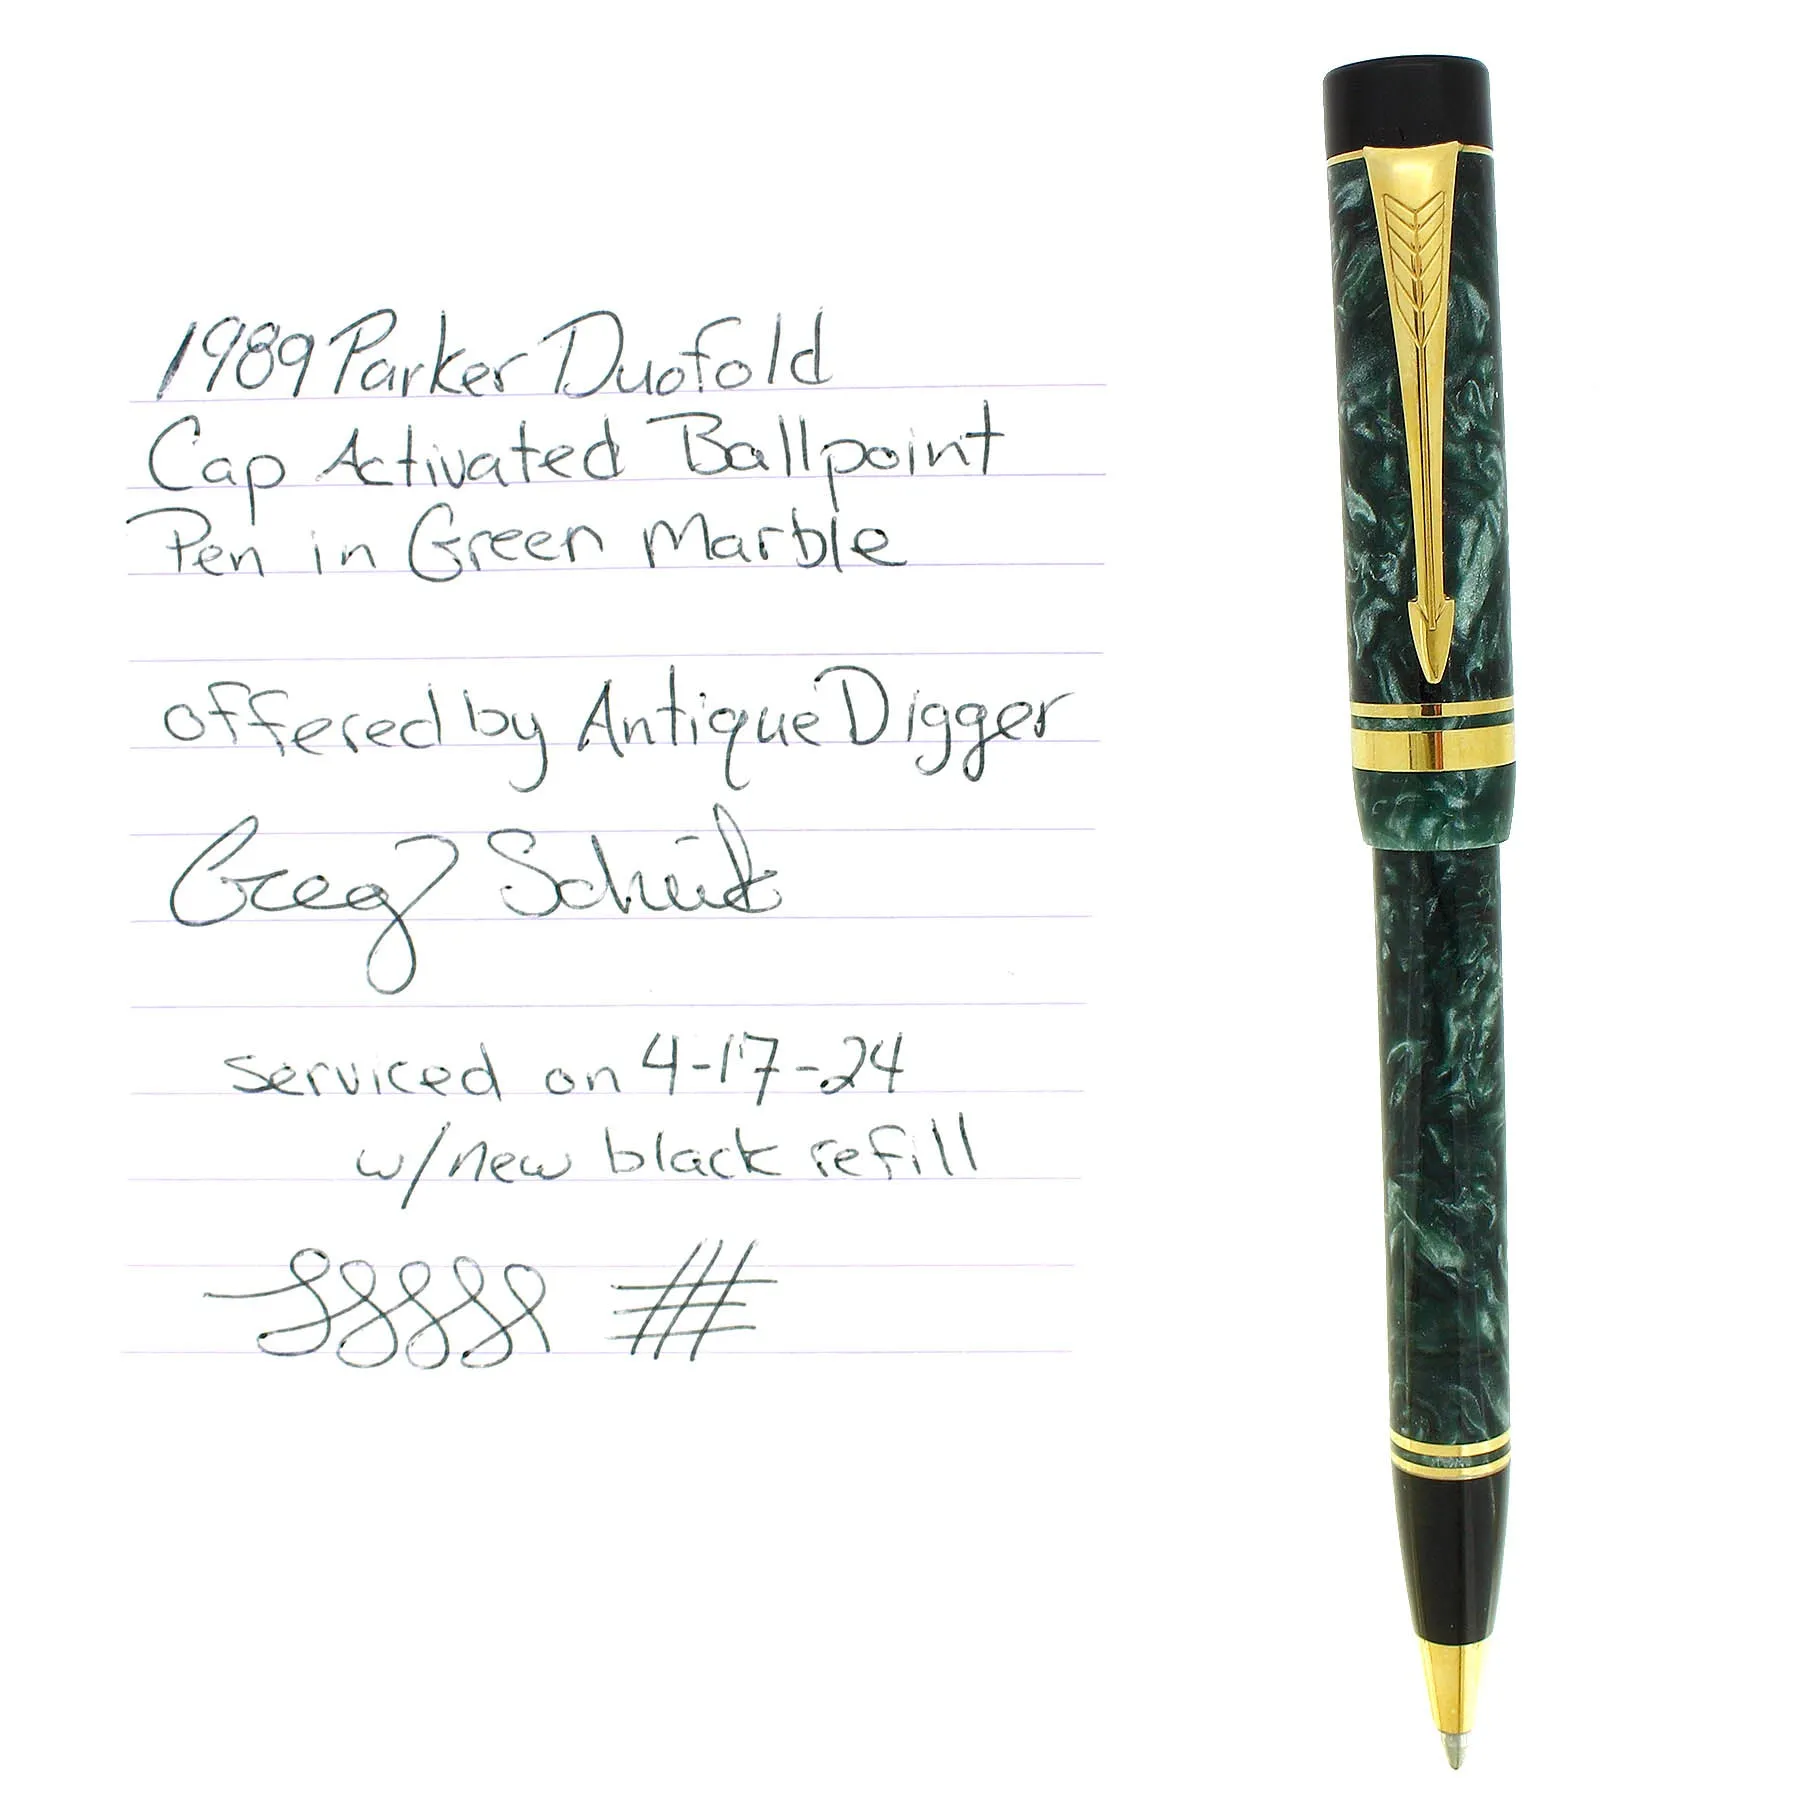 1989 Parker Duofold
Cap Activated Ballpoint
Pen in Green Marble
offered by Antique Digger
Greg
serviced on 4-17-24
w/new black refill